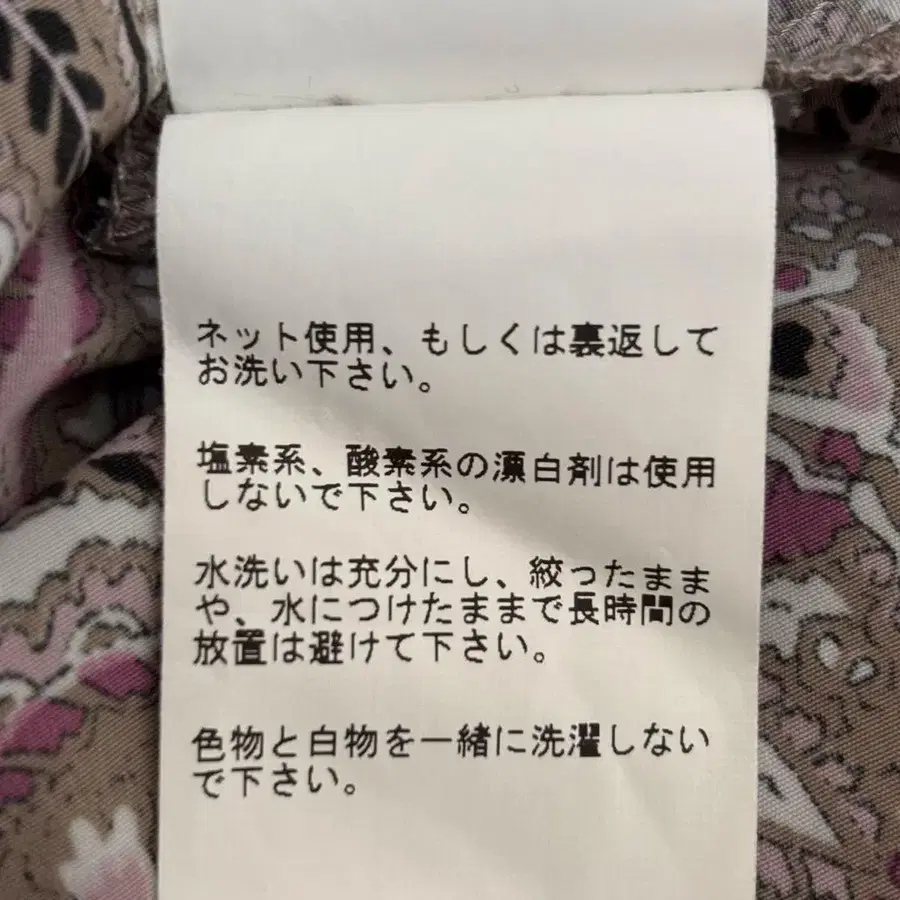 ネット使用、もしくは裏返して
お洗い下さい。
塩素系、酸素系の漂白剤は使用
しないで下さい。
水洗いは充分にし、絞ったまま
や、水につけたままで長時間の
放置は避けて下さい。
色物と白物を一緒に洗濯しない
で下さい。